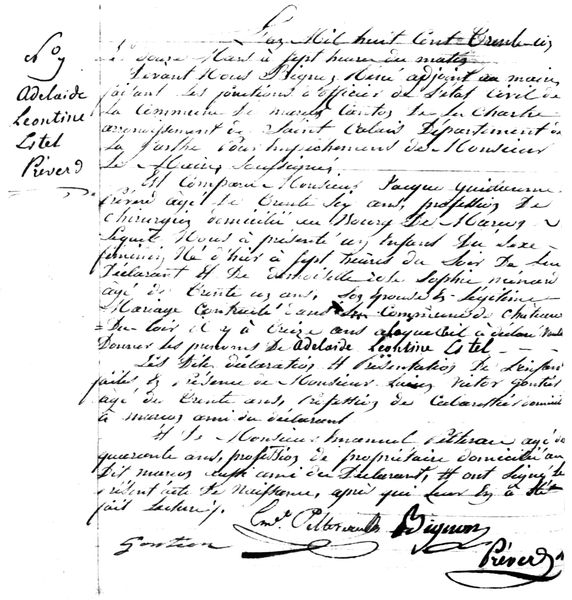 N° 7
Adelaide
Leontine
Estel
Préverd
L'an Mil huit Cent Trente six
le douze Mars à sept heure du matin
devant Nous Bignon René adjoint au maire
faisant les fonctions d'officier de l'etat Civil de
la Commune de marçon Canton de La Chartre
arrondissement de Saint Calais Département de
la Sarthe Pour Empechement de Monsieur
Le Maire, soussigné.
Est Comparu Monsieur Jacque guillaume
Préverd agé de Trente Six ans, profession de
Chirurgien domicilié au Bourg De Marçon
Lequel Nous à présenté un Enfant Du Sexe
feminin Né d'hier à sept heures du soir De lui
Déclarant Et De demoiselle Sophie ménard
agé de Trente un ans, Son Epouse En Légitime
Mariage Contracté dans la Commune de Chateau
Du-Loir il y à treize ans auquel il à déclaré vouloir
Donner les prenoms de Adelaide Leontine Estel
Les Dites déclaration Et Présentation de L'enfant
faites En Présence de Monsieur Victor gontier
agé de Trente ans, Profession de domicilié
à marçon ami du déclarant
Et De Monsieur Emanuel Pelterau agé de
quarente ans, profession de propriétaire domicilié au
Dit marçon aussi ami du Déclarant, Et ont signé le
présent acte de Naissance, après qui leur En à Eté
fait Lecture
Em. Pelterau Bignon
Gontier Préverd